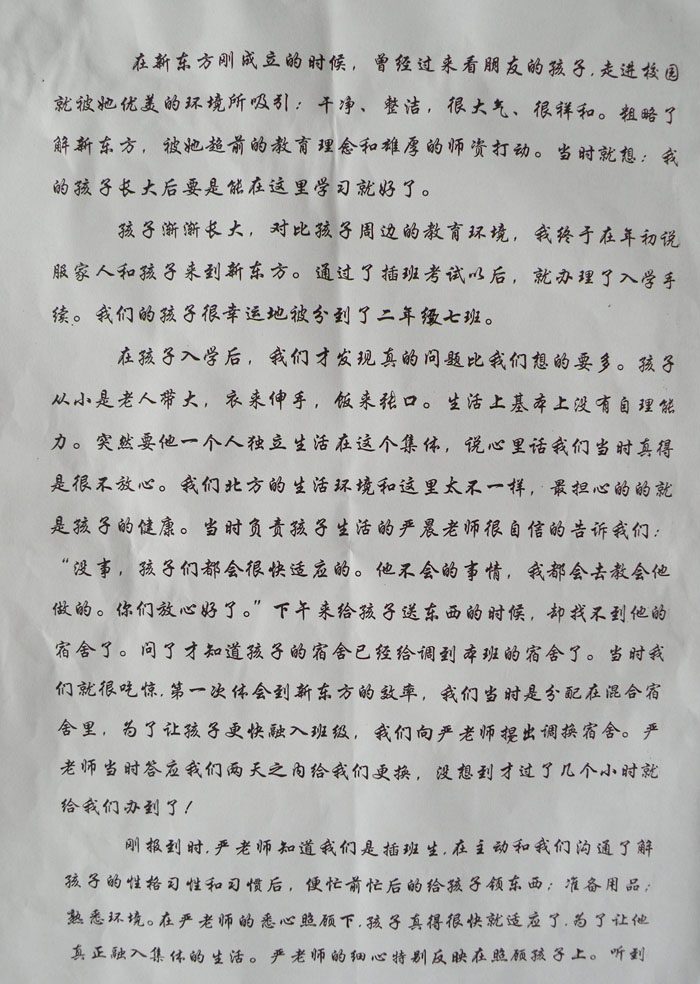 在新东方刚成立的时候，曾经过来看朋友的孩子，走进校园
就被她优美的环境所吸引：干净、整洁，很大气、很祥和。粗略了
解新东方，被她超前的教育理念和雄厚的师资打动。当时就想：我
的孩子长大后要是能在这里学习就好了。
孩子渐渐长大，对比孩子周边的教育环境，我终于在年初说
服家人和孩子来到新东方。通过了插班考试以后，就办理了入学手
续。我们的孩子很幸运地被分到了二年级七班。
在孩子入学后，我们才发现真的问题比我们想的要多。孩子
从小是老人带大，衣来伸手，饭来张口。生活上基本上没有自理能
力。突然要他一个人独立生活在这个集体，说心里话我们当时真得
是很不放心。我们北方的生活环境和这里太不一样，最担心的的就
是孩子的健康。当时负责孩子生活的严晨老师很自信的告诉我们：
“没事，孩子们都会很快适应的。他不会的事情，我都会去教会他
做的。你们放心好了。”下午来给孩子送东西的时候，却找不到他的
宿舍了。问了才知道孩子的宿舍已经给调到本班的宿舍了。当时我
们就很吃惊，第一次体会到新东方的效率，我们当时是分配在混合宿
舍里，为了让孩子更快融入班级，我们向严老师提出调换宿舍。严
老师当时答应我们两天之内给我们更换，没想到才过了几个小时就
给我们办到了！
刚报到时，严老师知道我们是插班生，在主动和我们沟通了解
孩子的性格习性和习惯后，便忙前忙后的给孩子领东西；准备用品；
熟悉环境。在严老师的悉心照顾下，孩子真得很快就适应了，为了让他
真正融入集体的生活。严老师的细心特别反映在照顾孩子上。听到